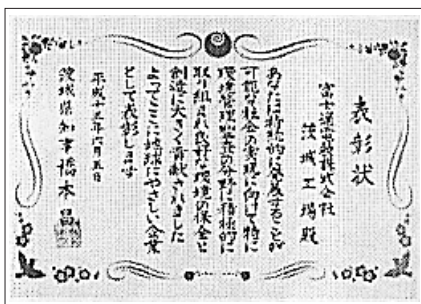 表彰状
富士通電装株式会社
茨城工場殿
あなたは持続的に発展することが
可能な社会の実現に向けて特に
環境管理監査の分野に積極的に
取り組まれ良好な環境の保全と
創造に大きく貢献されました
よってここに地球にやさしい企業
として表彰します
平成十三年六月五日
茨城県知事橋本昌